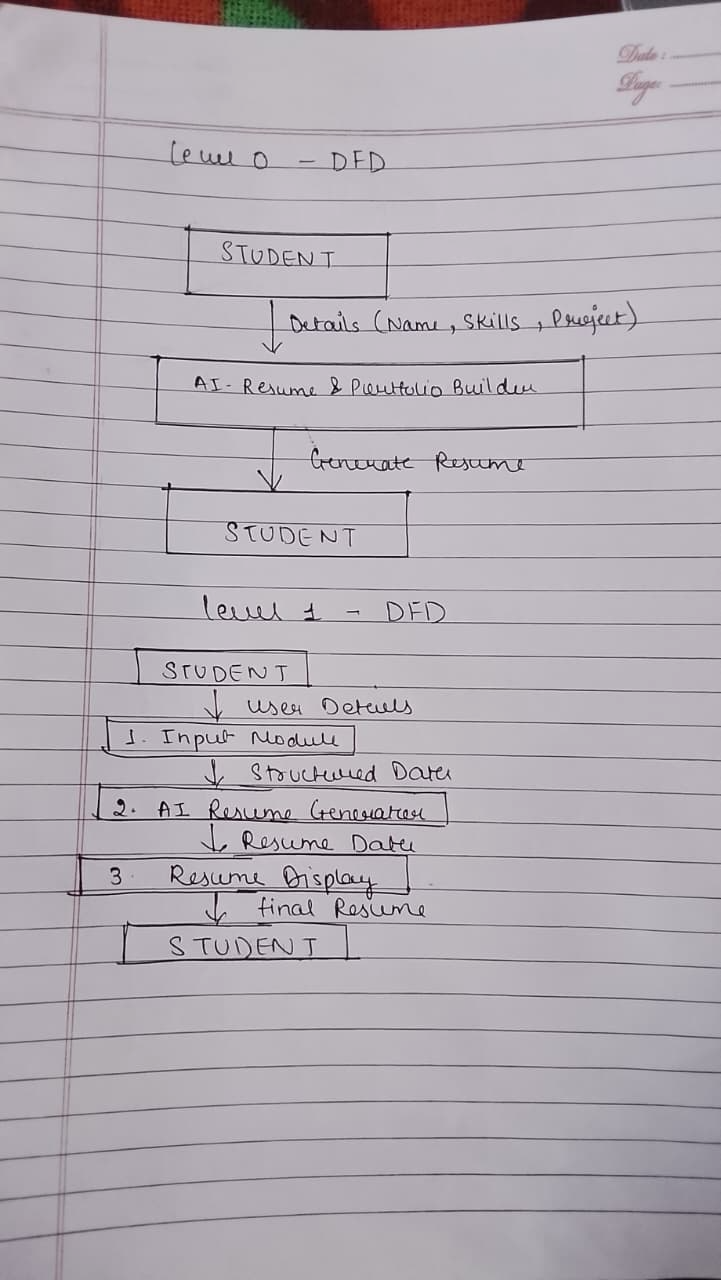 Date:
Page:
Level 0 - DFD
STUDENT
Details (Name, Skills, Project)
AI-Resume & Portfolio Builder
Generate Resume
STUDENT
level 1 - DFD
STUDENT
User Details
1. Input Module
Structured Data
2. AI Resume Generator
Resume Data
3. Resume Display
final Resume
STUDENT